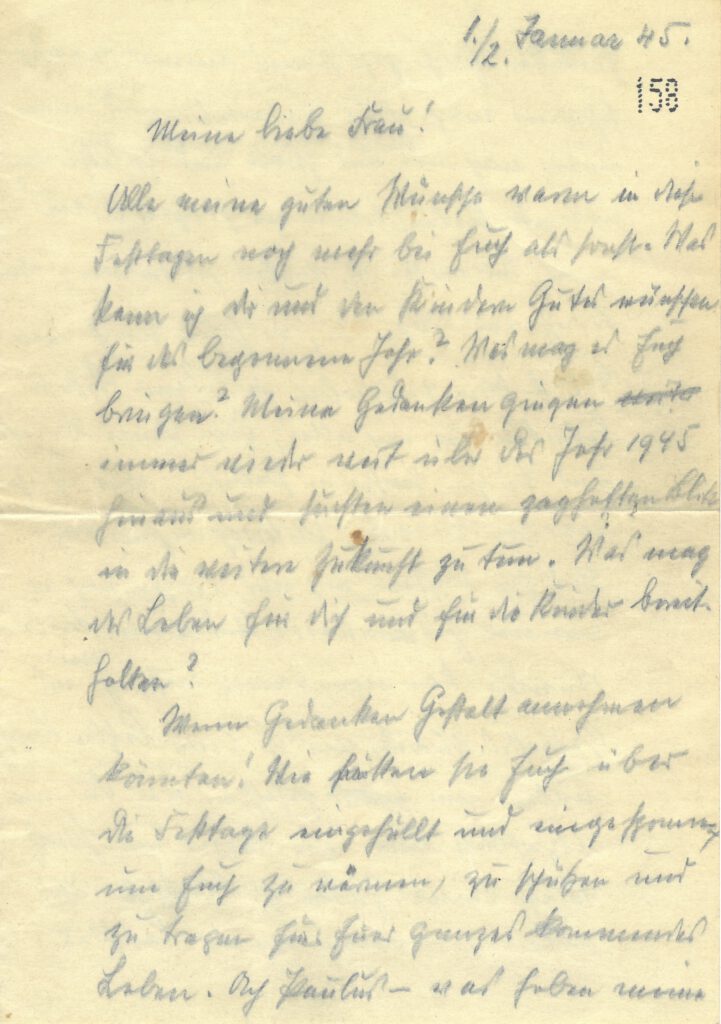 1./2. Januar 45.
158
Meine liebe Frau!
Alle meine guten Wünsche waren in diesen
Festtagen noch mehr bei Euch als sonst. Was
kann ich dir und den Kindern Gutes wünschen
für das begonnene Jahr? Was mag es Euch
bringen? Meine Gedanken gingen
immer wieder weit über das Jahr 1945
hinaus und suchten einen zaghaften Blick
in die weitere Zukunft zu tun. Was mag
das Leben für dich und für die Kinder bereit-
halten?
Wenn Gedanken Gestalt annehmen
könnten! Wie hätten sie Euch über
die Festtage eingehüllt und eingesponnen,
um Euch zu wärmen, zu schützen und
zu tragen für Euer ganzes kommendes
Leben. Ach Paulus – was haben meine